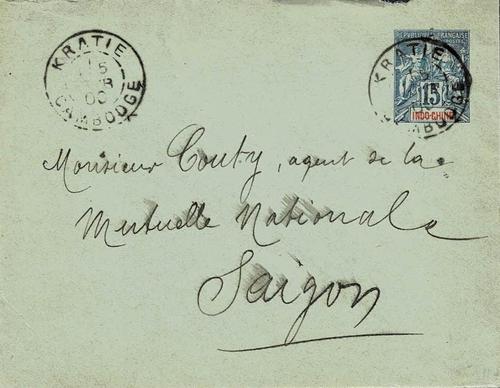 KRATIE
15
00
CAMBODGE
REPUBLIQUE FRANÇAISE
KRATIE
15
INDO-CHINE
CAMBODGE
Monsieur Couty, agent de la
Mutuelle Nationale
Saïgon